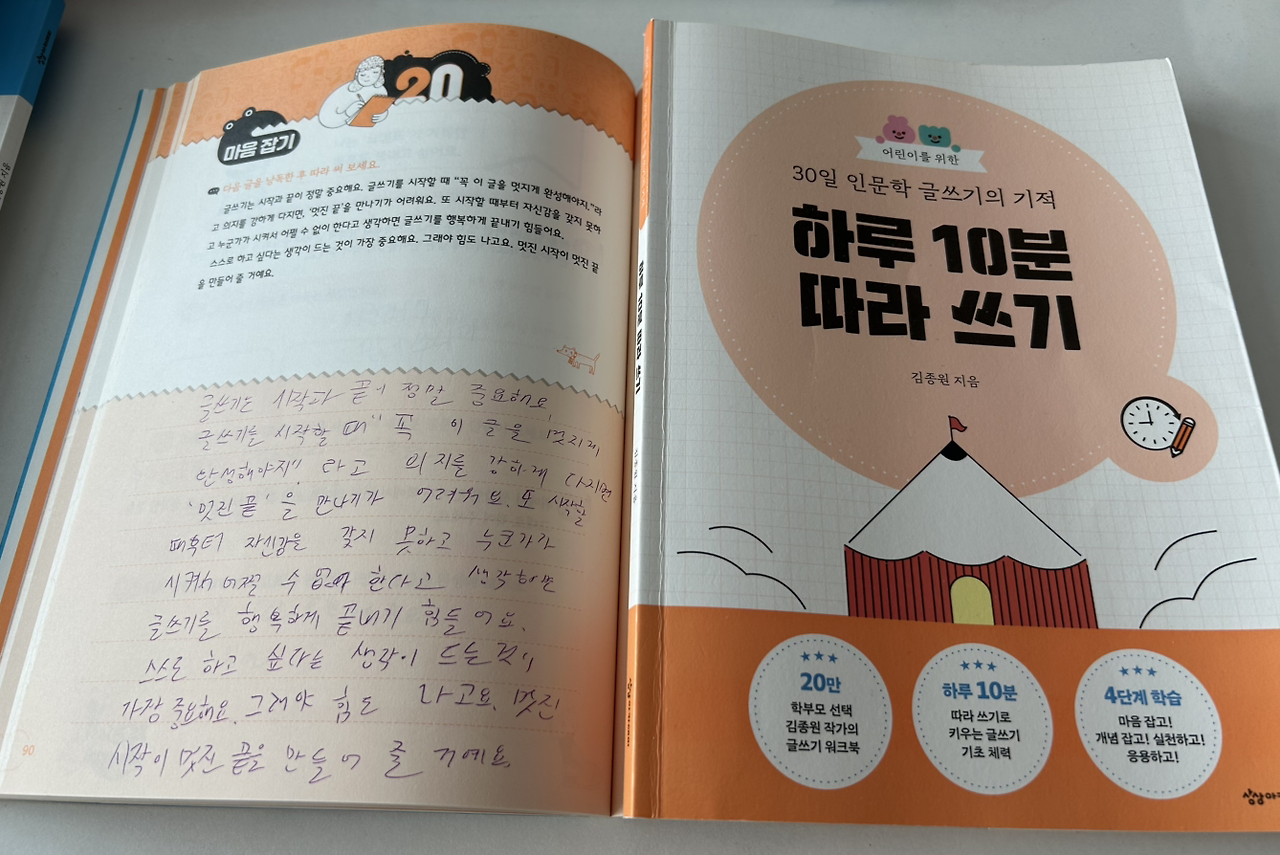 20
마음 잡기
다음 글을 낭독한 후 따라 써 보세요.
글쓰기는 시작과 끝이 정말 중요해요. 글쓰기를 시작할 때 “꼭 이 글을 멋지게 완성해야지.”라
고 의지를 강하게 다지면, ‘멋진 끝’을 만나기가 어려워요. 또 시작할 때부터 자신감을 갖지 못하
고 누군가가 시켜서 어쩔 수 없이 한다고 생각하면 글쓰기를 행복하게 끝내기 힘들어요.
스스로 하고 싶다는 생각이 드는 것이 가장 중요해요. 그래야 힘도 나고요. 멋진 시작이 멋진 끝
을 만들어 줄 거예요.
글쓰기는 시작과 끝이 정말 중요해요,
글쓰기를 시작할 때 "꼭 이 글을 멋지게,
완성해야지". 라고 의지를 강하게 다지면
'멋진 끝' 을 만나기가 어려워요. 또 시작할
때부터 자신감을 갖지 못하고 누군가가
시켜서 어쩔 수 없이 한다고 생각하면
글쓰기를 행복하게 끝내기 힘들어요.
스스로 하고 싶다는 생각이 드는것이
가장 중요해요. 그래야 힘도 나고요. 멋진
시작이 멋진 끝을 만들어 줄 거예요.
90
하루 10분 따라 쓰기
어린이를 위한
30일 인문학 글쓰기의 기적
하루 10분
따라 쓰기
김종원 지음
20만
학부모 선택
김종원 작가의
글쓰기 워크북
하루 10분
따라 쓰기로
키우는 글쓰기
기초 체력
4단계 학습
마음 잡고!
개념 잡고! 실천하고!
응용하고!